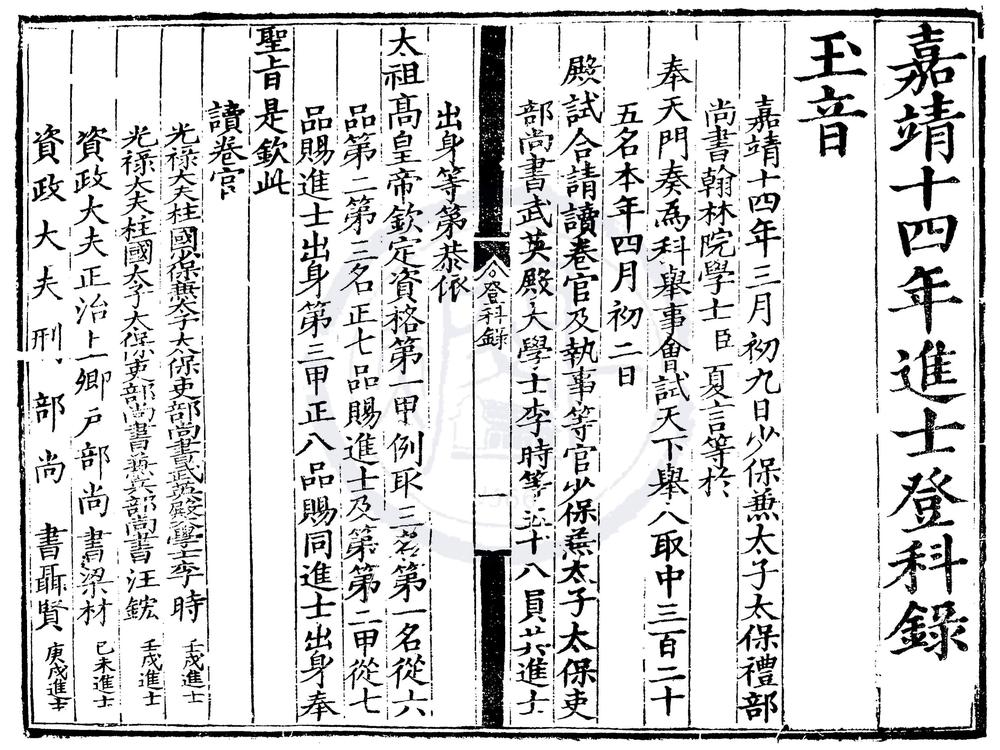 嘉靖十四年進士登科錄
玉音
嘉靖十四年三月初九日少保兼太子太保禮部
尚書翰林院學士臣夏言等於
奉天門奏爲科舉事會試天下舉人取中三百二十
五名本年四月初二日
殿試合請讀卷官及執事等官少保兼太子太保吏
部尚書武英殿大學士李時等五十八員其進士
登科錄
一
出身等第恭依
太祖高皇帝欽定資格第一甲例取三名第一名從六
品第二第三名正七品賜進士及第第二甲從七
品賜進士出身第三甲正八品賜同進士出身奉
聖旨是欽此
讀卷官
光祿大夫柱國少保兼太子太保吏部尚書武英殿大學士李時 壬戌進士
光祿大夫柱國太子太保吏部尚書兼兵部尚書汪鋐 壬戌進士
資政大夫正治上卿戶部尚書梁材 己未進士
資政大夫刑部尚書聶賢 庚戌進士